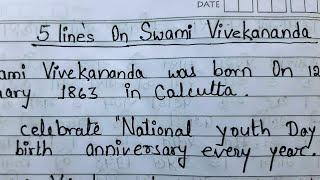 DATE
5 lines On Swami Vivekananda
ami Vivekananda was born On 12
uary 1863 in Calcutta.
celebrate "National youth Day
birth anniversary every year.